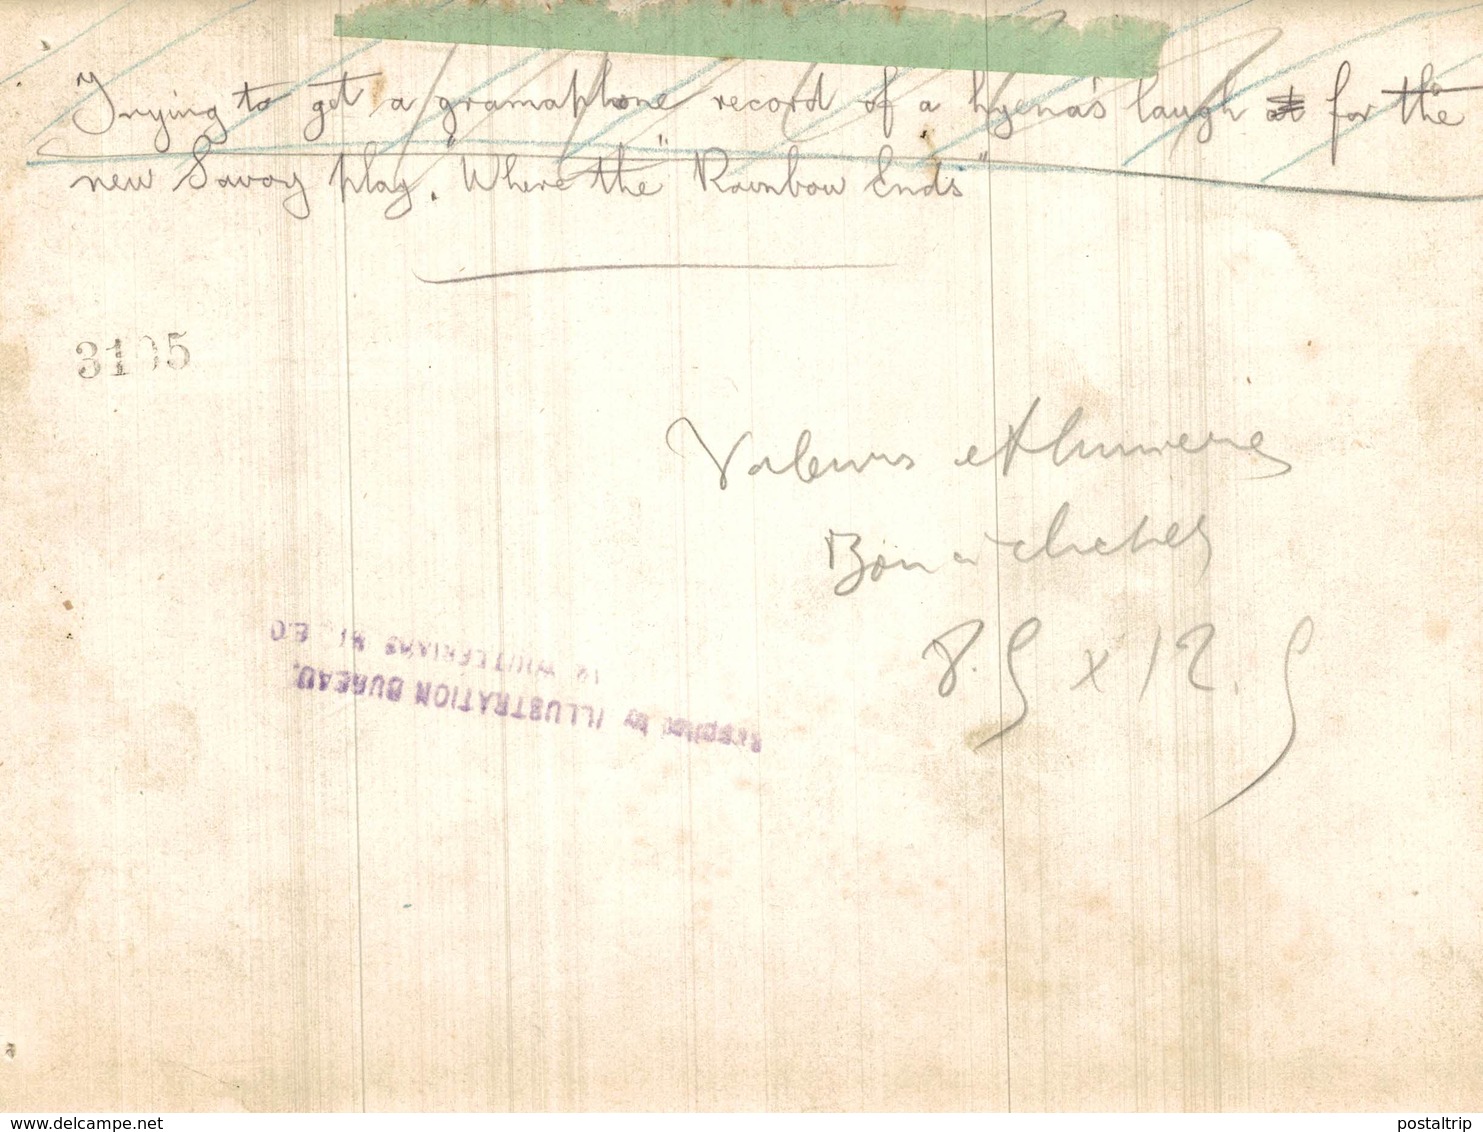 Trying to get a gramaphone record of a hyena's laugh at for the
new Savoy play, "Where the" Rainbow Ends"
3105
Valeurs et lumière
Bon à clicher
8.5 x 12.5
Supplied by ILLUSTRATION BUREAU,
12 WHITEFRIARS St. E.C
delcampe.net
postaltrip